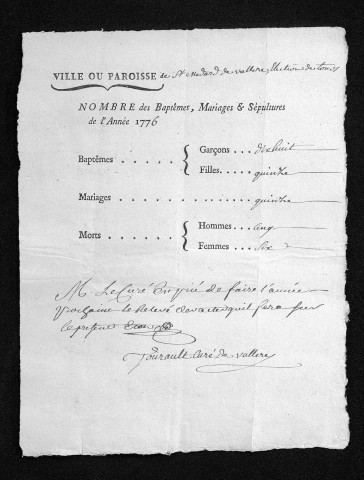 VILLE OU PAROISSE de St medard de vallere Election de tours
NOMBRE des Baptêmes, Mariages & Sépultures
de l'Année 1776
Baptêmes . . . . . Garçons . . . dix huit
Filles . . . . quinze
Mariages . . . . . . . . . . . . quinze
Morts . . . . . . Hommes . . . cinq
Femmes . . . six
M. Le Curé Est prié de faire l'année
prochaine le Relevé qu'il fera sur
le présent
Tourault curé de vallere